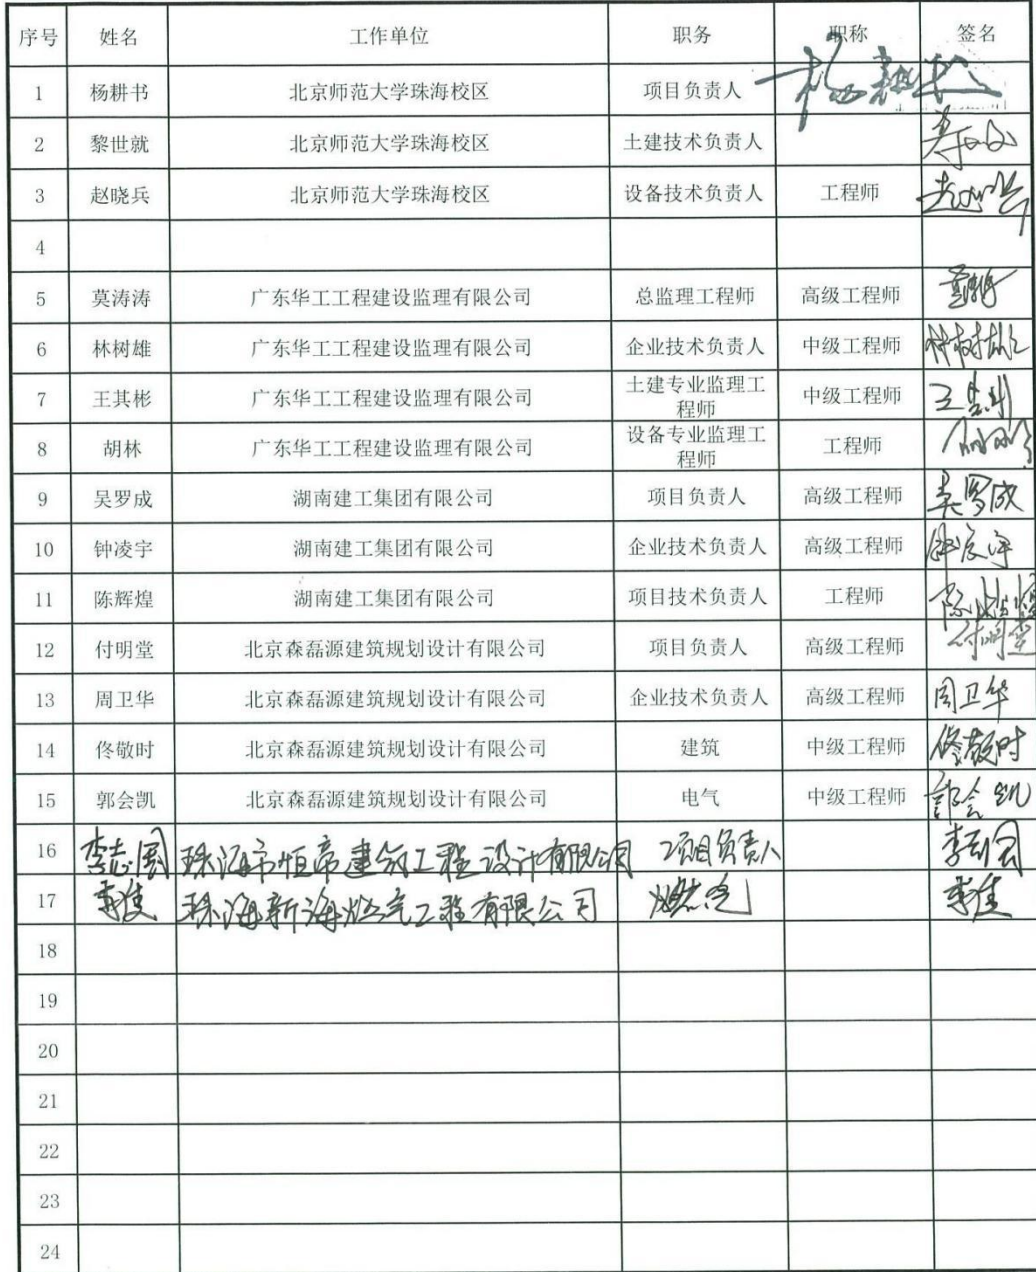 序号 姓名 工作单位 职务 职称 签名
1 杨耕书 北京师范大学珠海校区 项目负责人
2 黎世就 北京师范大学珠海校区 土建技术负责人
3 赵晓兵 北京师范大学珠海校区 设备技术负责人 工程师
4
5 莫涛涛 广东华工工程建设监理有限公司 总监理工程师 高级工程师
6 林树雄 广东华工工程建设监理有限公司 企业技术负责人 中级工程师 林树雄
7 王其彬 广东华工工程建设监理有限公司 土建专业监理工
程师 中级工程师
8 胡林 广东华工工程建设监理有限公司 设备专业监理工
程师 工程师
9 吴罗成 湖南建工集团有限公司 项目负责人 高级工程师 吴罗成
10 钟凌宇 湖南建工集团有限公司 企业技术负责人 高级工程师
11 陈辉煌 湖南建工集团有限公司 项目技术负责人 工程师 陈辉煌
12 付明堂 北京森磊源建筑规划设计有限公司 项目负责人 高级工程师 付明堂
13 周卫华 北京森磊源建筑规划设计有限公司 企业技术负责人 高级工程师 周卫华
14 佟敬时 北京森磊源建筑规划设计有限公司 建筑 中级工程师 佟敬时
15 郭会凯 北京森磊源建筑规划设计有限公司 电气 中级工程师 郭会凯
16 李志国 珠海市恒帝建筑工程设计有限公司 项目负责人 李志国
17 李佳 珠海新海燃气工程有限公司 燃气 李佳
18
19
20
21
22
23
24